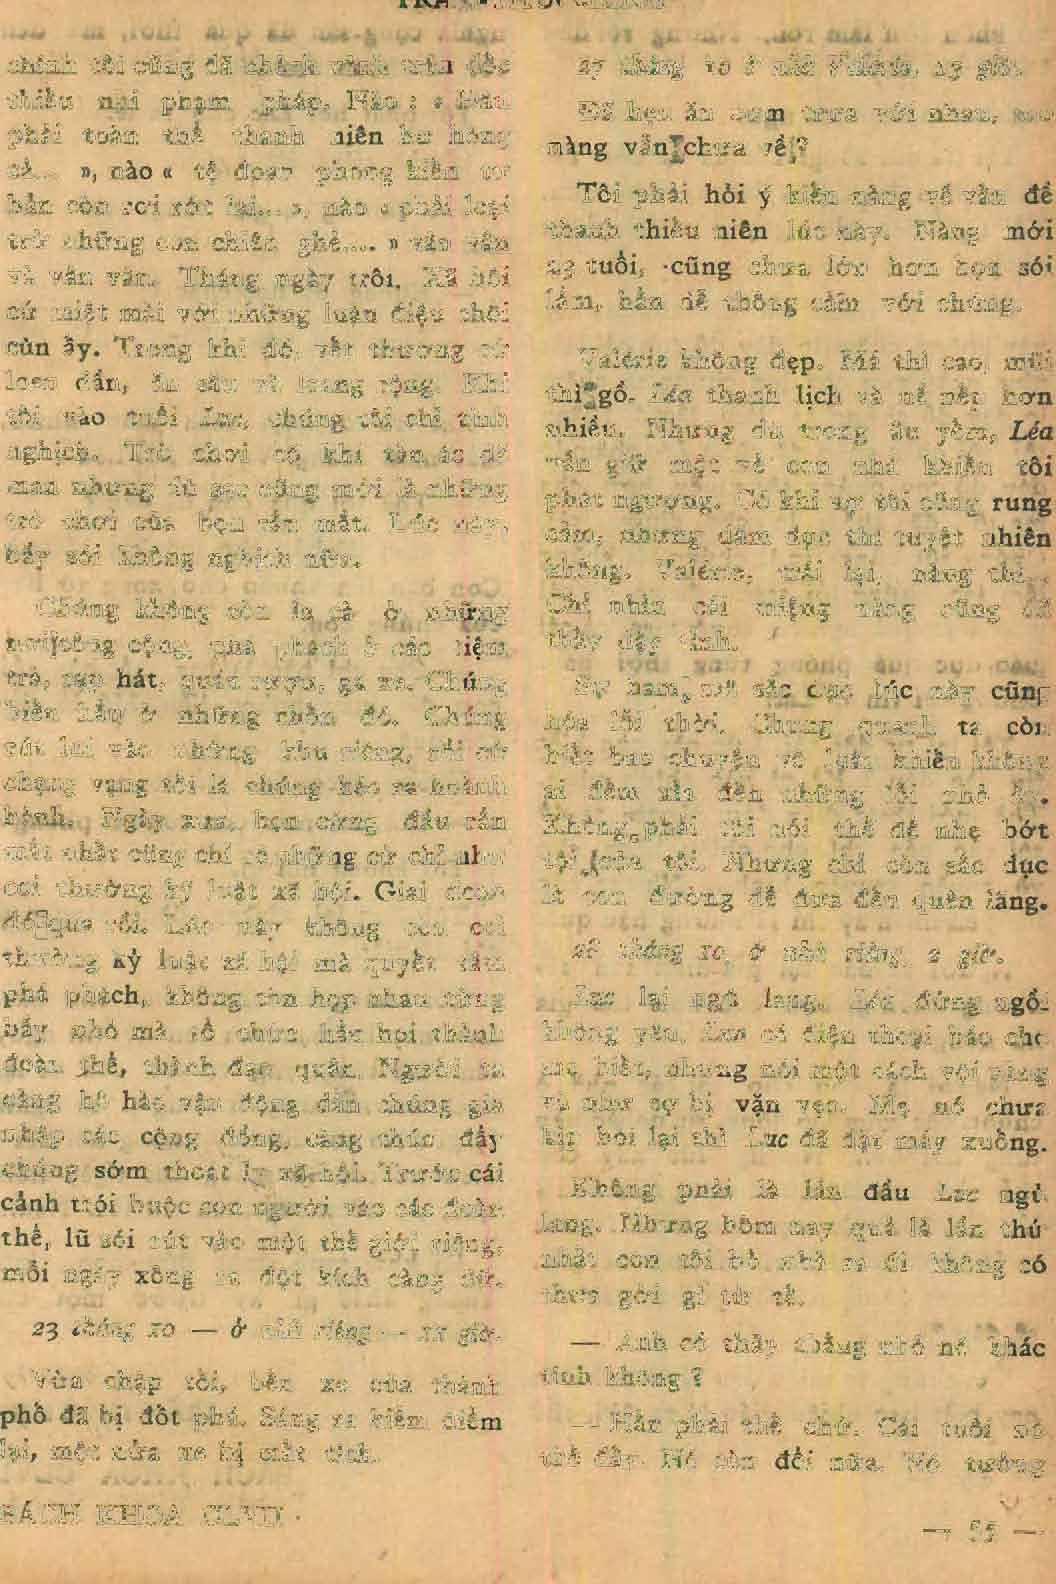 chính tôi cũng đã chênh vênh trên dốc
nhiều nại phạm pháp. Nào : « Đâu
phải toàn thể thanh niên hư hỏng
cả... », nào « tệ đoan phong kiến tư
bản còn rơi rớt lại... », nào « phải loại
trừ những con chiên ghẻ.... » vân vân
và vân vân. Tháng ngày trôi. Xã hội
cứ miệt mài với những luận điệu chôi
củn ấy. Trong khi đó, vết thương cứ
loen dần, ăn sâu và loang rộng. Khi
tôi vào tuổi Luc, chúng tôi chỉ tinh
nghịch. Trò chơi có khi tàn ác dã
man nhưng dù sao cũng mới là những
trò chơi của bọn rắn mắt. Lúc này,
bầy sói không nghịch nữa.
Chúng không còn la cà ở những
nơi công cộng, phá phách ở các tiệm
trà, rạp hát, quán rượu, ga xe. Chúng
biến hẳn ở những chỗn đó. Chúng
rút lui vào những khu riêng, rồi cứ
chạng vạng tối là chúng kéo ra hoành
hành. Ngày xưa, bọn cứng đầu rắn
mắt nhất cũng chỉ có những cử chỉ như
coi thường kỷ luật xã hội. Giai đoạn
đó qua rồi. Lúc này không còn coi
thường kỷ luật xã hội mà quyết tâm
phá phách, không tôn họp nhau từng
bầy nhỏ mà tổ chức hẳn hoi thành
đoàn thể, thành đạo quân. Người ta
càng hô hào vận động dẫn chúng gia
nhập các cộng đồng, càng thúc đẩy
chúng sớm thoát ly xã hội. Trước cái
cảnh trói buộc con người vào các đoàn
thể, lũ sói rút vào một thế giới riêng,
mỗi ngày xông ra đột kích càng dữ.
23 tháng 10 — ở nhà riêng — 11 giờ.
Vừa chập tối, bến xe của thành
phố đã bị đột phá. Sáng ra kiểm điểm
lại, một nửa xe bị mất tích.
BÁCH KHOA CLVII
27 tháng 10 ở nhà Valérie, 15 giờ.
Đã hẹn ăn cơm trưa với nhau, sao
nàng vẫn chưa về ?
Tôi phải hỏi ý kiến nàng về vấn đề
thanh thiếu niên lúc này. Nàng mới
23 tuổi, cũng chưa lớn hơn bọn sói
lắm, hẳn dễ thông cảm với chúng.
Valérie không đẹp. Má thì cao, mũi
thì gồ. Léa thanh lịch và nề nếp hơn
nhiều. Nhưng dù trong âu yếm, Léa
vẫn giữ một vẻ con nhà khiến tôi
phát ngượng. Có khi vợ tôi cũng rung
cảm, nhưng dâm dục thì tuyệt nhiên
không. Valérie, trái lại, nàng thì...
Chỉ nhìn cái miệng nàng cũng đã
thấy dậy tình.
Sự ham mê sắc dục lúc này cũng
hóa lỗi thời. Chung quanh ta còn
biết bao chuyện vô luân khiến không
ai đếm xỉa đến những lỗi nhỏ ấy.
Không phải tôi nói thế để nhẹ bớt
tội của tôi. Nhưng chỉ còn sắc dục
là con đường để đưa đến quên lãng.
28 tháng 10, ở nhà riêng, 2 giờ.
Luc lại ngủ lang. Léa đứng ngồi
không yên. Luc có điện thoại báo cho
mẹ biết, nhưng nói một cách vội vàng
và như sợ bị vặn vẹo. Mẹ nó chưa
kịp hỏi lại thì Luc đã đặt máy xuống.
Không phải là lần đầu Luc ngủ
lang. Nhưng hôm nay quả là lần thứ
nhất con tôi bỏ nhà ra đi không có
thưa gởi gì tử tế.
— Anh có thấy thằng nhỏ nó khác
tính không ?
— Hẳn phải thế chứ. Cái tuổi nó
thế đấy. Nó còn đổi nữa. Nó tưởng
— 55 —